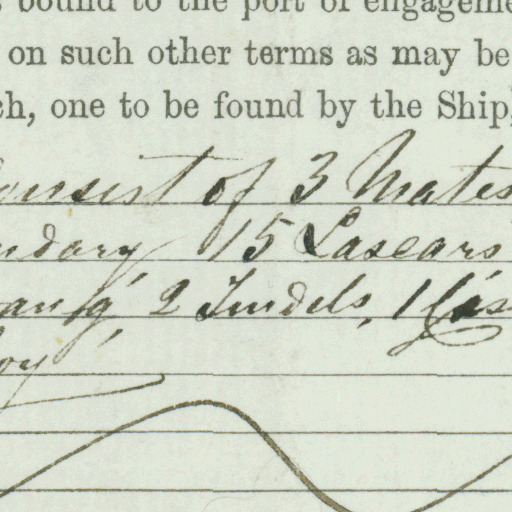 bound to the port of engageme
on such other terms as may be
ch, one to be found by the Ship,
consist of 3 Mates
ndary 15 Lascars
ang 2 Tindels, 1 Cas
oy